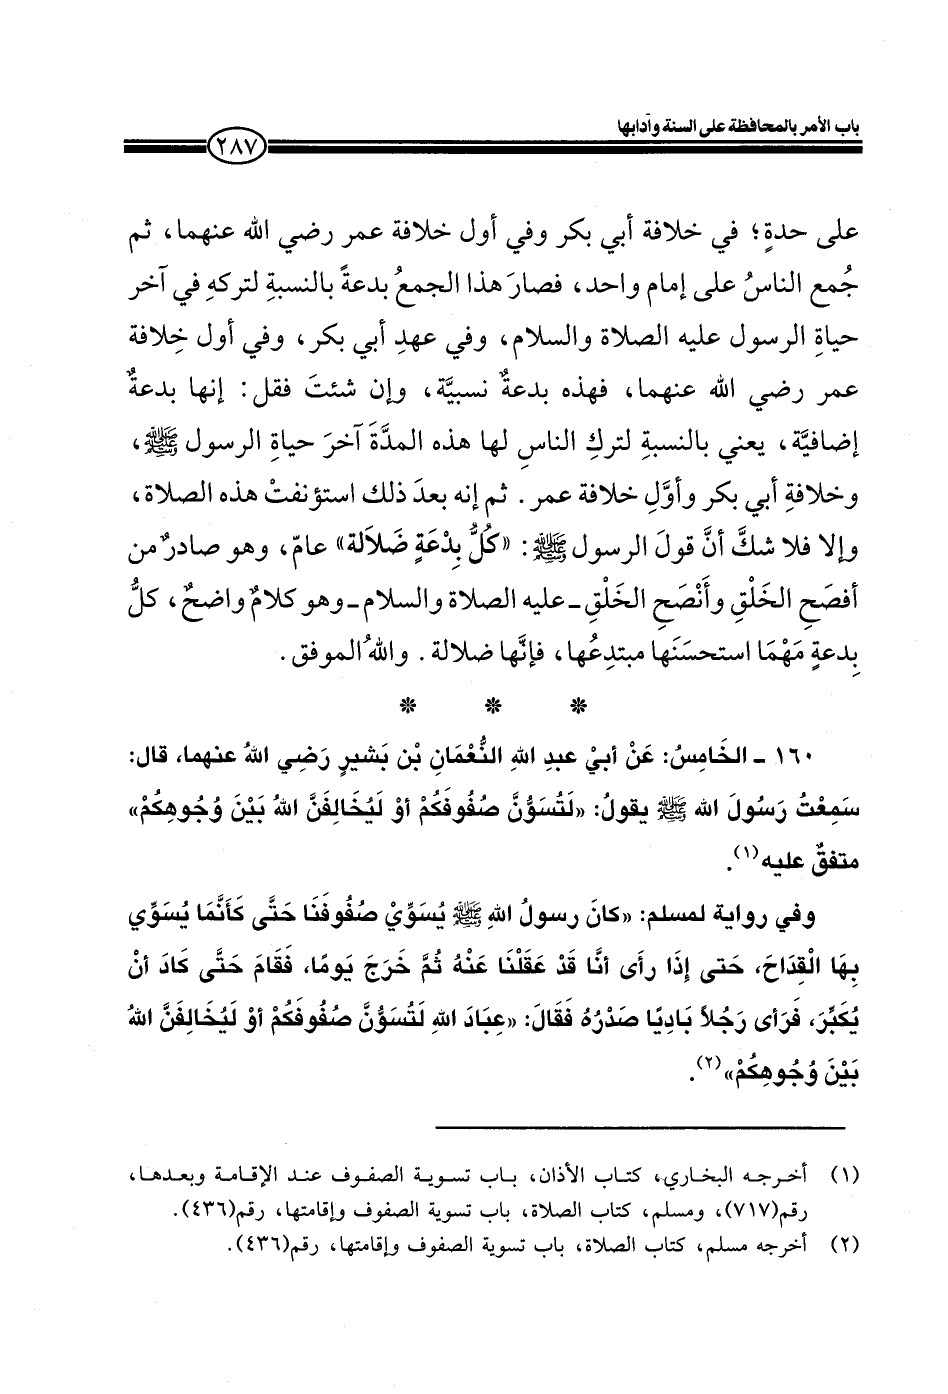 باب الأمر بالمحافظة على السنة وآدابها
٢٨٧
على حدةٍ؛ في خلافة أبي بكر وفي أول خلافة عمر رضي الله عنهما، ثم
جُمع الناسُ على إمام واحد، فصارَ هذا الجمعُ بدعةً بالنسبةِ لتركهِ في آخر
حياةِ الرسول عليه الصلاة والسلام، وفي عهدِ أبي بكر، وفي أول خِلافة
عمر رضي الله عنهما، فهذه بدعةٌ نسبيَّة، وإن شئتَ فقل: إنها بدعةٌ
إضافيَّة، يعني بالنسبةِ لتركِ الناسِ لها هذه المدَّةَ آخرَ حياةِ الرسول ﷺ،
وخلافةِ أبي بكر وأوَّلِ خلافة عمر. ثم إنه بعدَ ذلك استؤنفتْ هذه الصلاة،
وإلا فلا شكَّ أنَّ قولَ الرسول ﷺ: «كُلُّ بِدْعَةٍ ضَلاَلة» عامّ، وهو صادرٌ من
أفصَحِ الخَلْقِ وأَنْصَحِ الخَلْقِ ـ عليه الصلاة والسلام ـ وهو كلامٌ واضحٌ، كلُّ
بِدعةٍ مَهْمَا استحسَنَها مبتدِعُها، فإنَّها ضلالة. واللهُ الموفق.
* * *
١٦٠ ـ الخَامِسُ: عَنْ أبيْ عبدِ اللهِ النُّعْمَانِ بْنِ بَشيرٍ رَضِي اللهُ عنهما، قال:
سَمِعْتُ رَسُولَ الله ﷺ يقولُ: «لَتُسَوُّنَّ صُفُوفَكُمْ أوْ لَيُخَالِفَنَّ اللهُ بَيْنَ وُجُوهِكُمْ»
متفقٌ عليه(١).
وفي رواية لمسلم: «كانَ رسولُ اللهِ ﷺ يُسَوِّيْ صُفُوفَنَا حَتَّى كَأَنَّمَا يُسَوِّي
بِهَا الْقِدَاحَ، حَتى إذَا رأى أنَّا قَدْ عَقَلْنَا عَنْهُ ثُمَّ خَرَجَ يَومًا، فَقَامَ حَتَّى كَادَ أنْ
يُكَبِّرَ، فَرَأى رَجُلاً بَادِيًا صَدْرُهُ فَقَالَ: «عِبَادَ اللهِ لَتُسَوُّنَّ صُفُوفَكُمْ أوْ لَيُخَالِفَنَّ اللهُ
بَيْنَ وُجُوهِكُمْ»(٢).
(١) أخرجه البخاري، كتاب الأذان، باب تسوية الصفوف عند الإقامة وبعدها،
رقم(٧١٧)، ومسلم، كتاب الصلاة، باب تسوية الصفوف وإقامتها، رقم(٤٣٦).
(٢) أخرجه مسلم، كتاب الصلاة، باب تسوية الصفوف وإقامتها، رقم(٤٣٦).